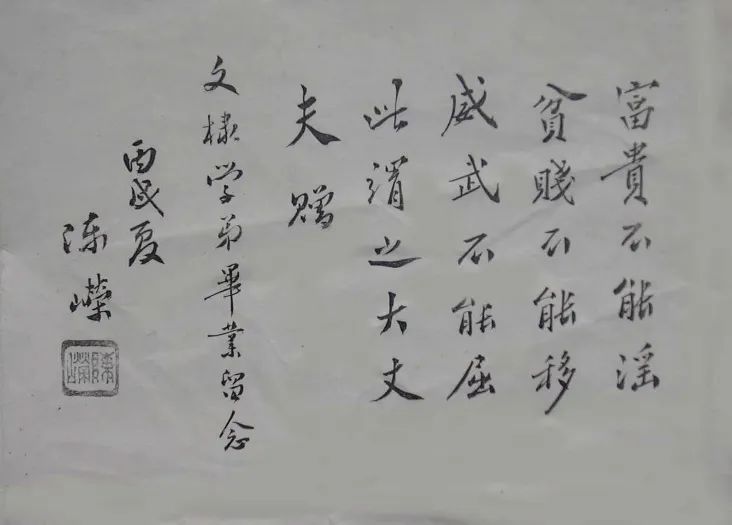 富貴不能淫
貧賤不能移
威武不能屈
此謂之大丈
夫贈
文棣学弟畢業留念
丙戌夏
陳嶸
陳嶸